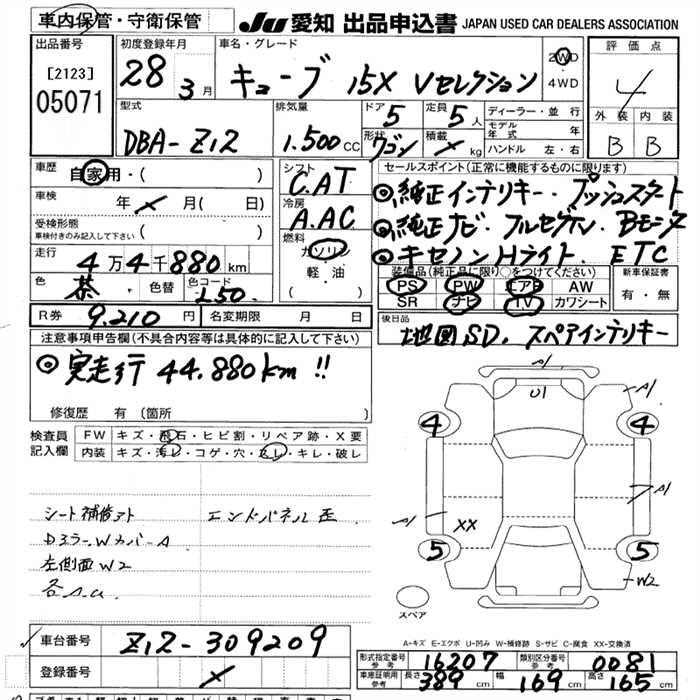 車内保管・守衛保管
JU 愛知 出品申込書 JAPAN USED CAR DEALERS ASSOCIATION
出品番号
[2123]
05071
初度登録年月
28 3 月
車名・グレード
キューブ 15X Vセレクション
2WD
・
4WD
評価点
4
外装 内装
B B
型式
DBA-Z12
排気量
1.500 CC
ドア 5
定員 5 人
形状 ワゴン
積載 × kg
ディーラー・並行
モデル年式 年
ハンドル 左・右
車歴
自家用・( )
車検 年 × 月( 日)
受検形態
車検付きのみ記入して下さい ( )
走行 4 万 4 千 880 km
色 茶 色替 色コード L50
シフト
C.AT
冷房
A.AC
燃料
ガソリン
軽・油
セールスポイント(正常に機能するものに限ります)
◎純正インテリキー・プッシュスタート
◎純正ナビ・フルセグTV. Bモニタ
◎キセノンHライト. ETC
装備品(純正品に限り○をつけてください)
PS PW エアB AW
SR ナビ TV カワシート
新車保証書
有・無
R券 9.210 円 名変期限 月 日
後日品
地図SD. スペアインテリキー
注意事項申告欄(不具合内容等は具体的に記入して下さい)
◎実走行 44.880km !!
修復歴 有 (箇所 )
検査員
記入欄
FW キズ・飛石・ヒビ割・リペア跡・X要
内装 キズ・汚レ・コゲ・穴・スレ・キレ・破レ
シート補修アト
DミラーWカバーA
左側面W2
エンドパネル歪
A1
U1
A1
4
4
A1
A1
XX
5
5
W2
スペア
A-キズ E-エクボ U-凹み W-補修跡 S-サビ C-腐食 XX-交換済
車台番号 Z12-309209
登録番号 ×
形式指定番号
参考
16207
類別区分番号
参考
0081
車庫証明用
参考
長さ 389 cm 幅 169 cm 高さ 165 cm